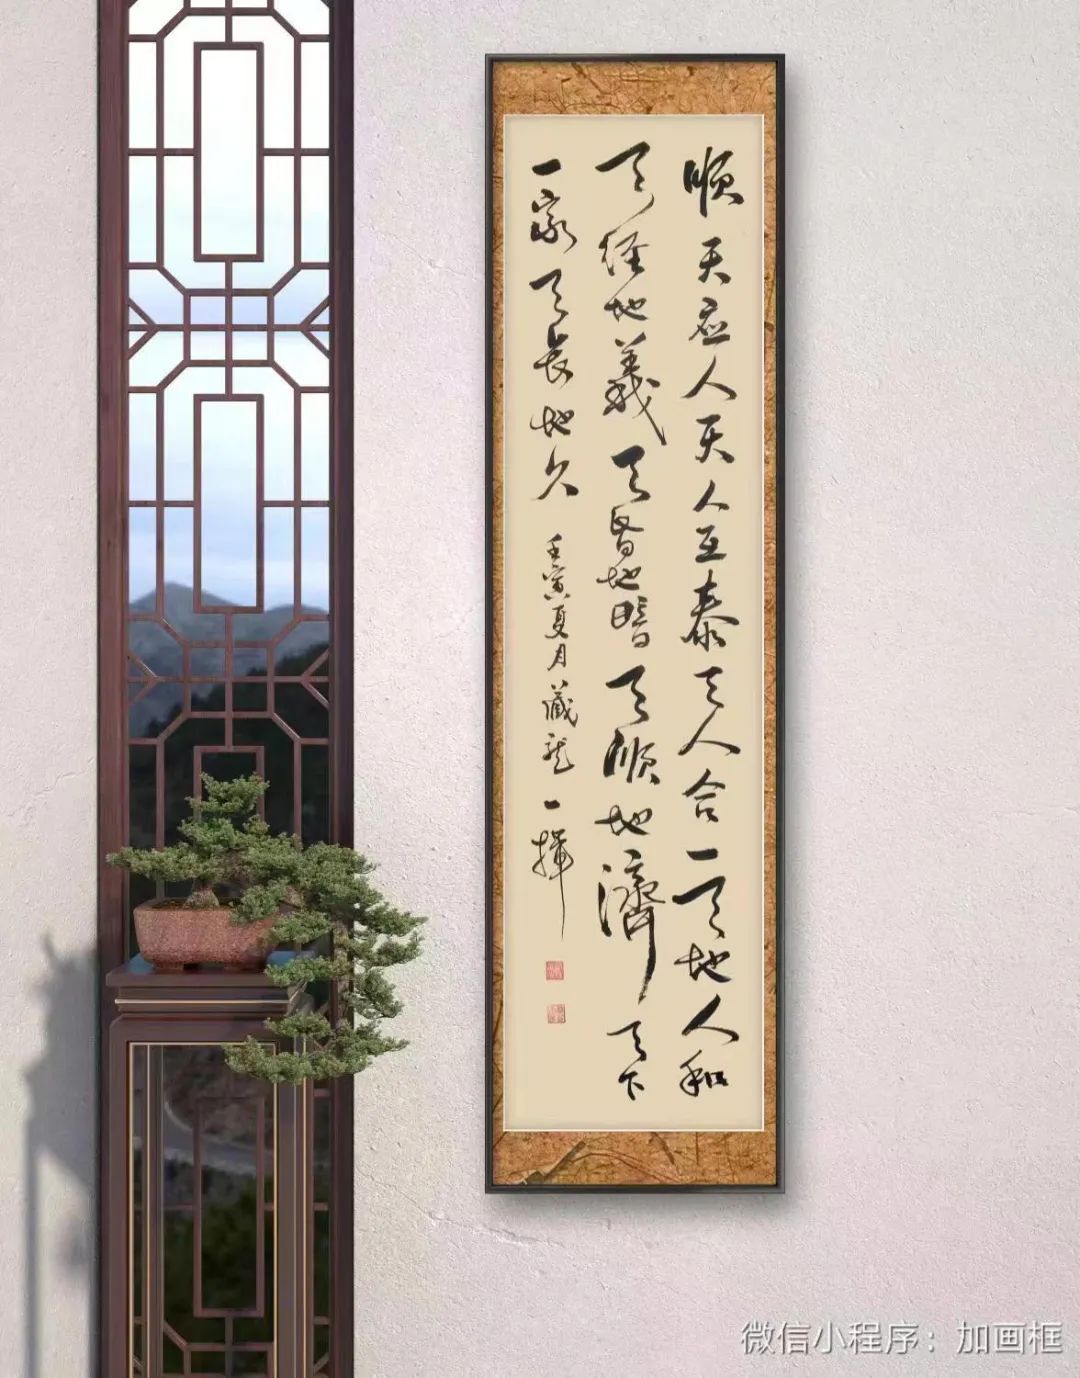 顺天应人天人互泰天人合一天地人和
天经地義天昏地暗天顺地濟天下
一家天长地久 壬寅夏月藏龙一挥
微信小程序：加画框